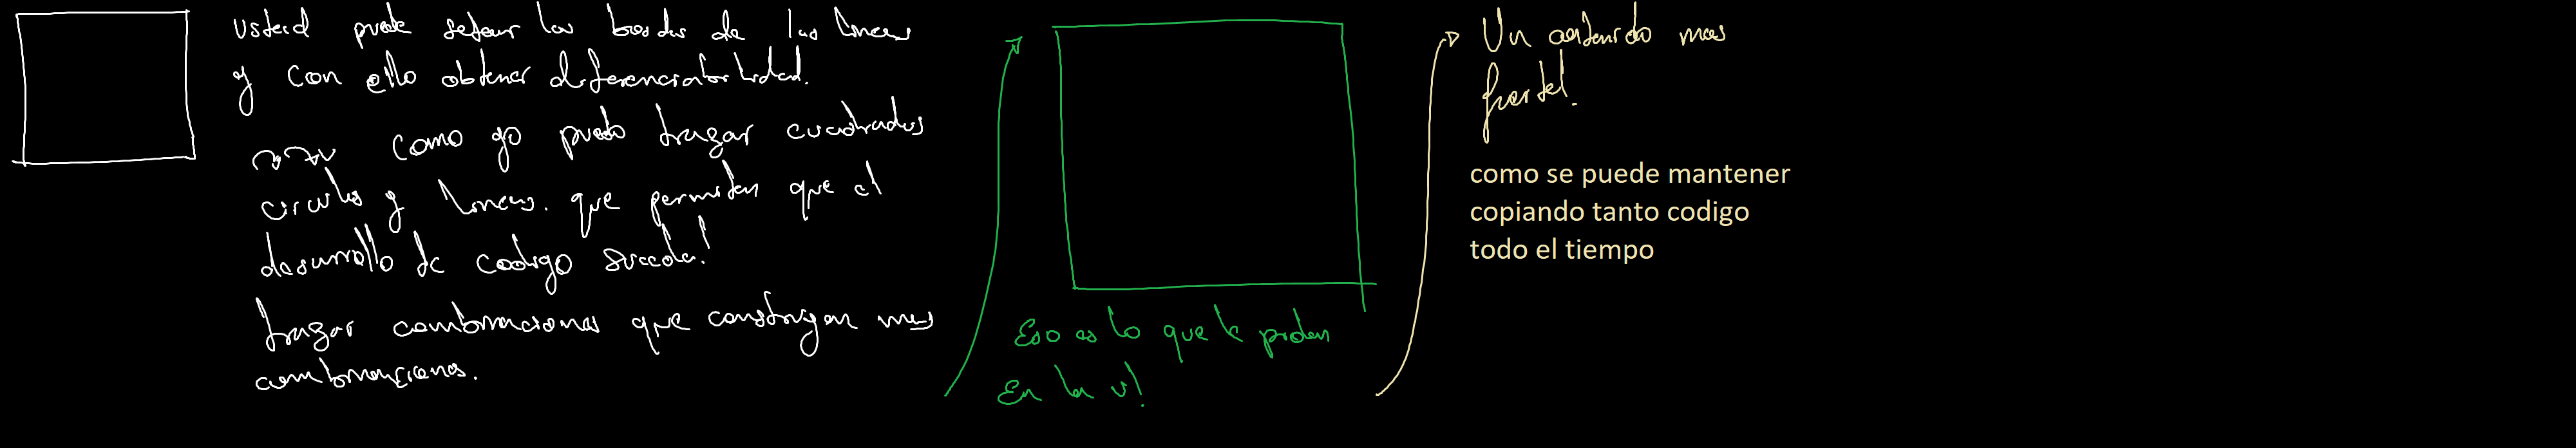 usted puede setear los bordes de las lineas
y con ello obtener diferenciabilidad.
como yo puedo trazar cuadrados
circulos y lineas. que permitan que el
desarrollo de codigo suceda!
trazar combinaciones que construyan mas
combinaciones.
Eso es lo que le piden
En la u!
Un contenido mas
como se puede mantener
copiando tanto codigo
todo el tiempo